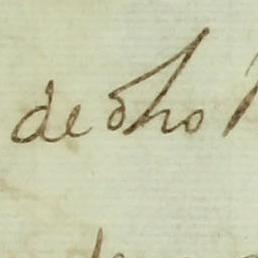 de dho